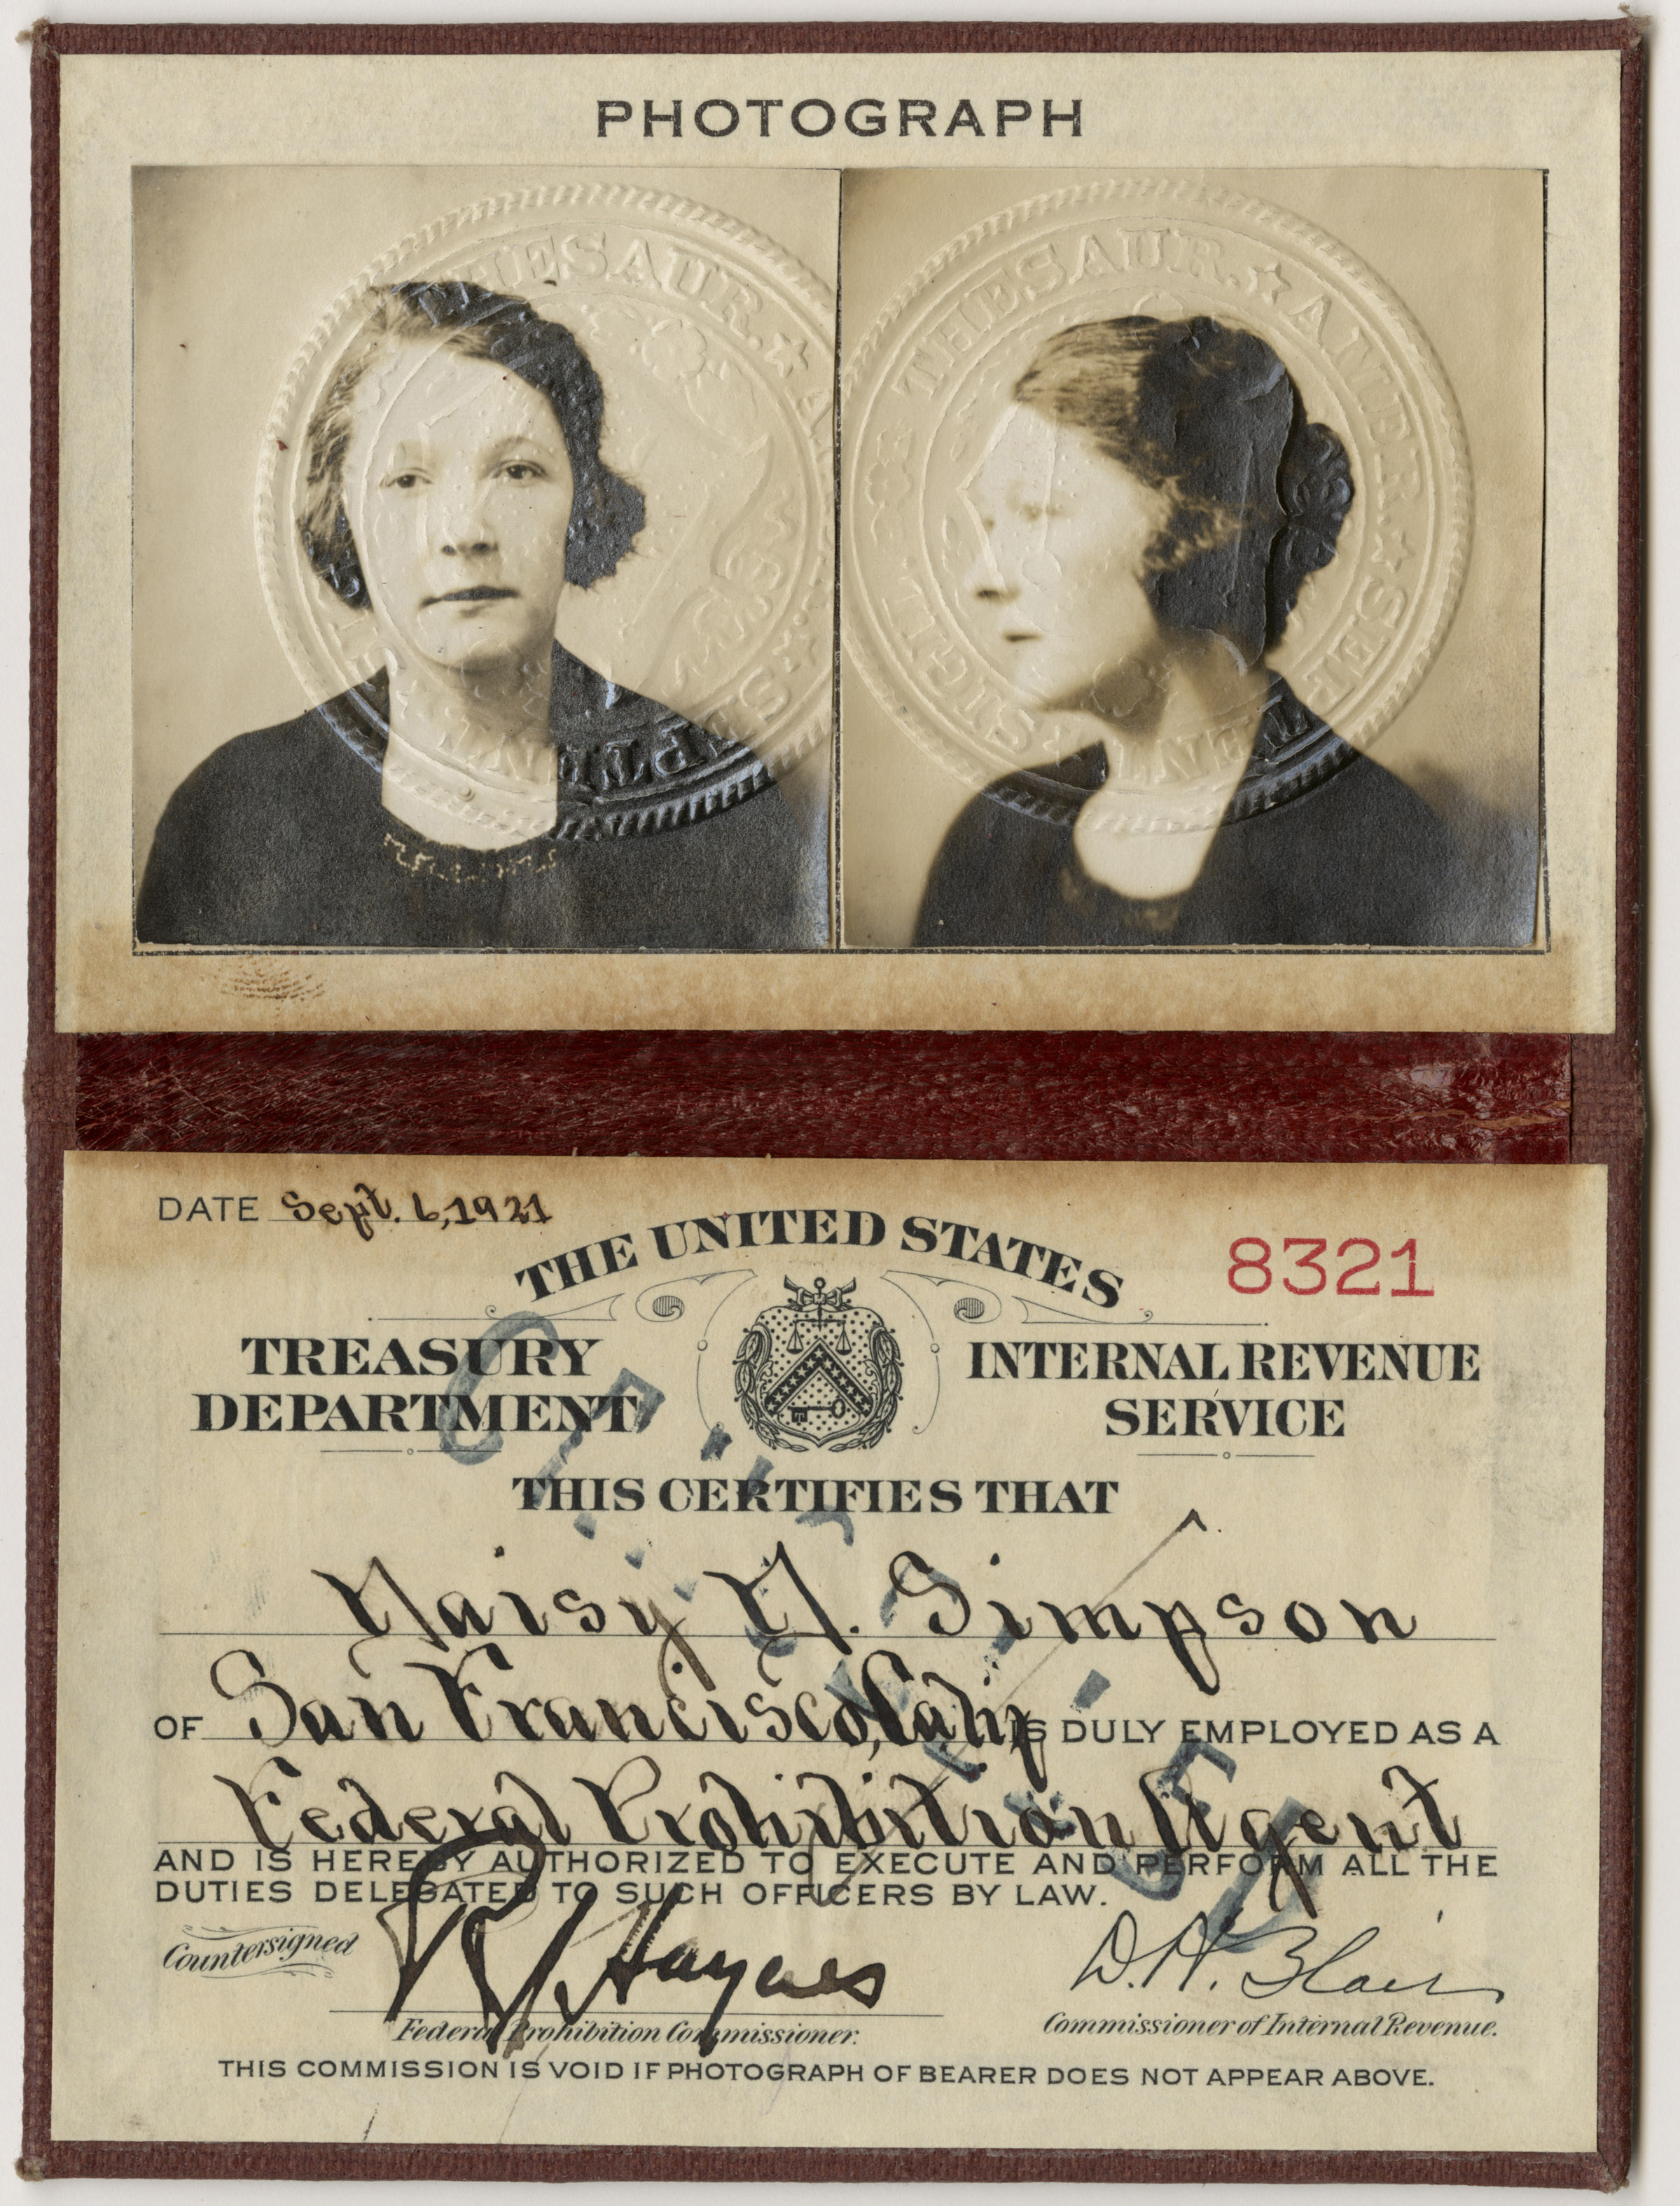 PHOTOGRAPH
THESAUR. ★ A
SEPTENT
THESAUR. ★ AMER. ★ SEPTENT. ★ SIGIL.
DATE Sept. 6, 1921
THE UNITED STATES
8321
TREASURY
DEPARTMENT
INTERNAL REVENUE
SERVICE
THIS CERTIFIES THAT
Daisy D. Simpson
OF San Francisco, Calif. IS DULY EMPLOYED AS A
Federal Prohibition Agent
AND IS HEREBY AUTHORIZED TO EXECUTE AND PERFORM ALL THE
DUTIES DELEGATED TO SUCH OFFICERS BY LAW.
Countersigned
R. A. Haynes
D. H. Blair
Federal Prohibition Commissioner.
Commissioner of Internal Revenue.
THIS COMMISSION IS VOID IF PHOTOGRAPH OF BEARER DOES NOT APPEAR ABOVE.